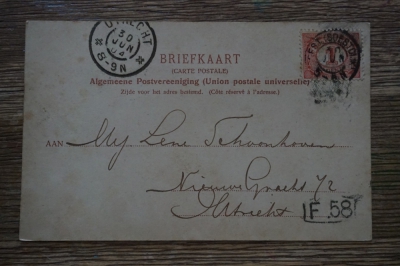 UTRECHT
30
JUN
8-9N
BRIEFKAART
(CARTE POSTALE)
Algemeene Postvereeniging (Union postale universelle)
Zijde voor het adres bestemd. (Côté réservé à l'adresse.)
1
AAN Mej Lene Schoonhoven
Nieuwe Gracht 72
Utrecht
F.58